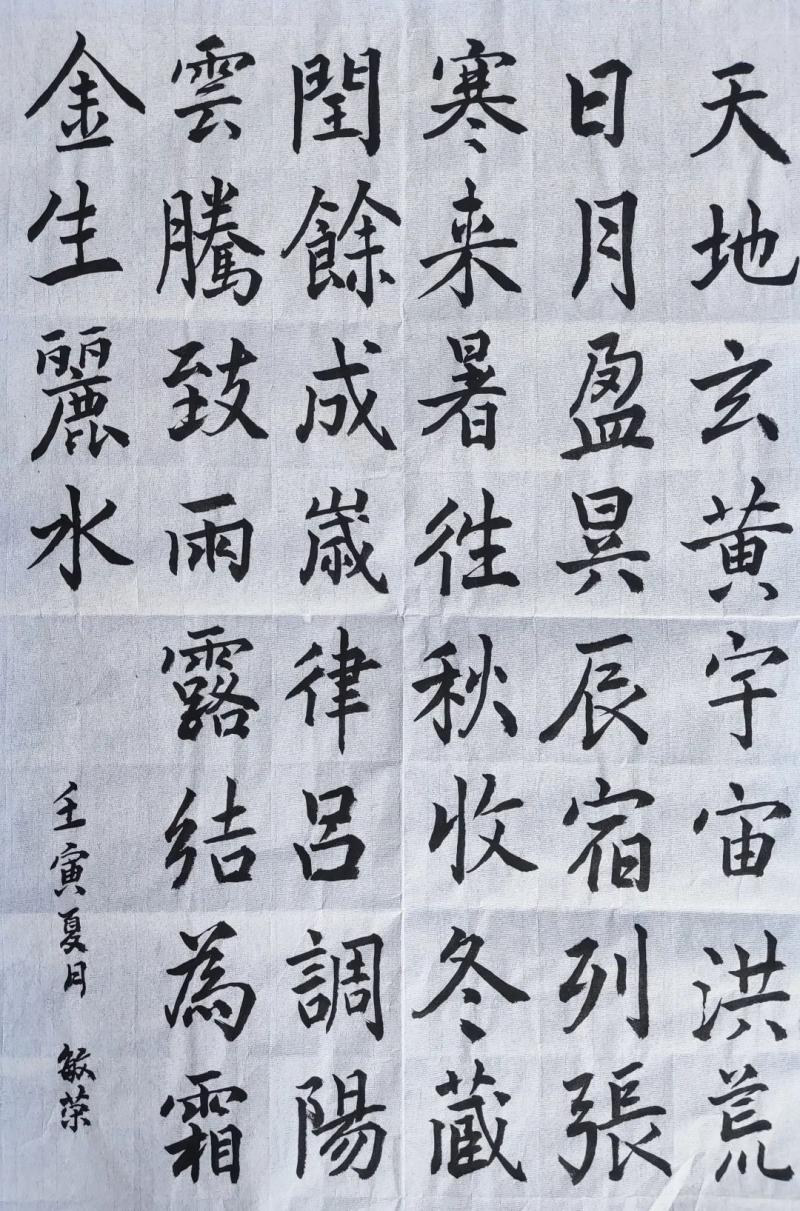 天地玄黄宇宙洪荒
日月盈昃辰宿列張
寒来暑往秋收冬藏
閏餘成歲律吕調陽
雲騰致雨露結為霜
金生麗水
壬寅夏月 敏荣